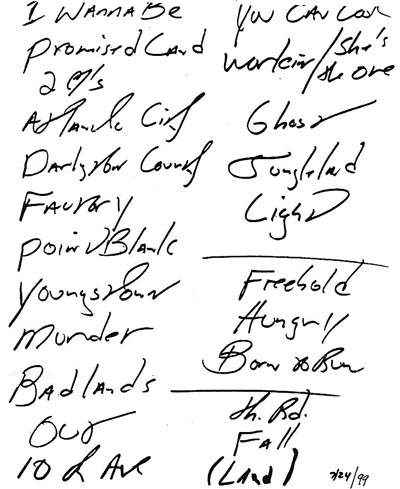 I WANNA BE
Promised Land
2 
Atlantic City
Darlington County
FACTORY
Point Blank
Youngstown
Murder
Badlands
Out
10th Ave
You Can Look
Workin/She's the one
Ghost
Jungleland
Light
Freehold
Hungry
Born to Run
Th. Rd.
Fall
(Land)
2/24/99